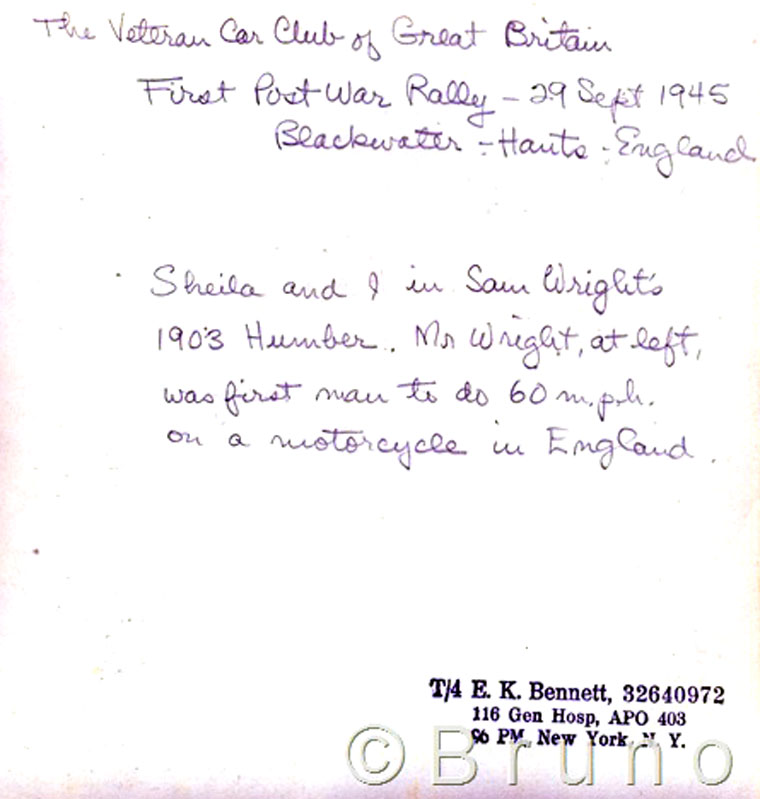 The Veteran Car Club of Great Britain
First Post War Rally - 29 Sept 1945
Blackwater - Hants - England
Sheila and I in Sam Wright's
1903 Humber. Mr Wright, at left,
was first man to do 60 m.p.h.
on a motorcycle in England.
T/4 E. K. Bennett, 32640972
116 Gen Hosp, APO 403
% PM, New York, N. Y.
© Bruno